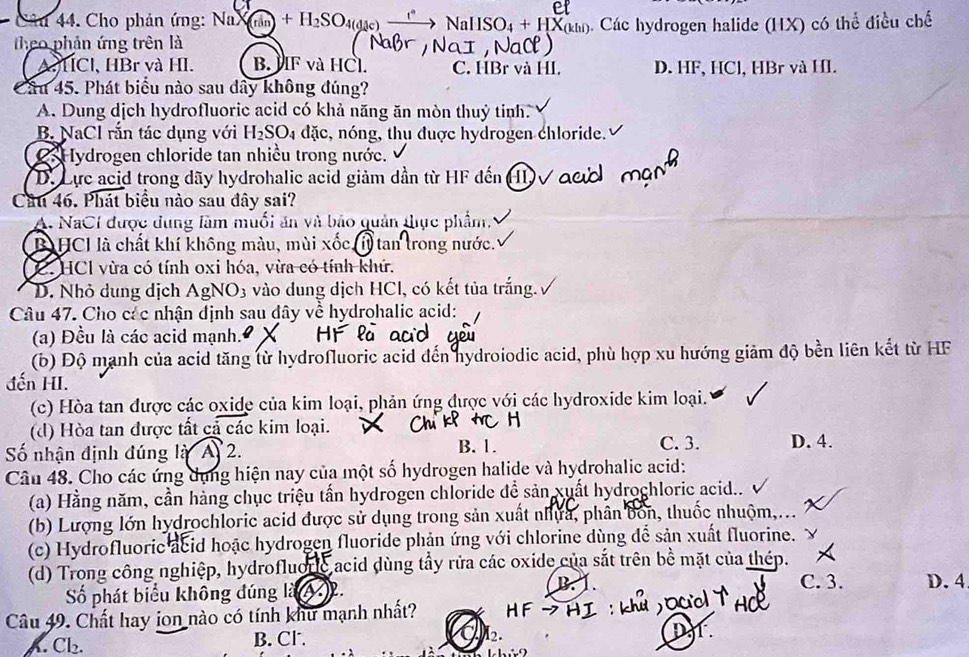 el
Câu 44. Cho phản ứng: NaX(rắn) + H₂SO₄(đặc) —t°→ NaHSO₄ + HX(khí). Các hydrogen halide (HX) có thể điều chế
theo phản ứng trên là (NaBr, NaI, NaCl)
A. HCl, HBr và HI. B. HF và HCl. C. HBr và HI. D. HF, HCl, HBr và HI.
Câu 45. Phát biểu nào sau đây không đúng?
A. Dung dịch hydrofluoric acid có khả năng ăn mòn thuỷ tinh. ✓
B. NaCl rắn tác dụng với H₂SO₄ đặc, nóng, thu được hydrogen chloride. ✓
C. Hydrogen chloride tan nhiều trong nước. ✓
D. Lực acid trong dãy hydrohalic acid giảm dần từ HF đến HI. ✓ acid mạnh
Câu 46. Phát biểu nào sau đây sai?
A. NaCl được dùng làm muối ăn và bảo quản thực phẩm. ✓
B. HCl là chất khí không màu, mùi xốc, ít tan trong nước. ✓
C. HCl vừa có tính oxi hóa, vừa có tính khử.
D. Nhỏ dung dịch AgNO₃ vào dung dịch HCl, có kết tủa trắng. ✓
Câu 47. Cho các nhận định sau đây về hydrohalic acid:
(a) Đều là các acid mạnh. X HF là acid yếu
(b) Độ mạnh của acid tăng từ hydrofluoric acid đến hydroiodic acid, phù hợp xu hướng giảm độ bền liên kết từ HF
đến HI.
(c) Hòa tan được các oxide của kim loại, phản ứng được với các hydroxide kim loại. ✓
(d) Hòa tan được tất cả các kim loại. X Chỉ KL trc H
Số nhận định đúng là A. 2. B. 1. C. 3. D. 4.
Câu 48. Cho các ứng dụng hiện nay của một số hydrogen halide và hydrohalic acid:
(a) Hằng năm, cần hàng chục triệu tấn hydrogen chloride để sản xuất hydrochloric acid.. ✓
PVC KCl
(b) Lượng lớn hydrochloric acid được sử dụng trong sản xuất nhựa, phân bón, thuốc nhuộm,...
(c) Hydrofluoric acid hoặc hydrogen fluoride phản ứng với chlorine dùng để sản xuất fluorine.
HF
(d) Trong công nghiệp, hydrofluoric acid dùng tẩy rửa các oxide của sắt trên bề mặt của thép. X
Số phát biểu không đúng là A. 2. B. 1. C. 3. D. 4.
HF → HI : khử, acid ↑ HCl
Câu 49. Chất hay ion nào có tính khử mạnh nhất?
A. Cl₂. B. Cl⁻. C. I₂. D. I⁻.